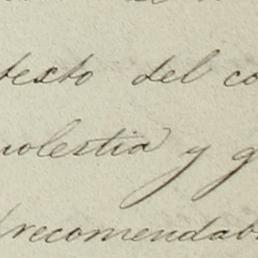 texto del co
molestia y g
recomendab